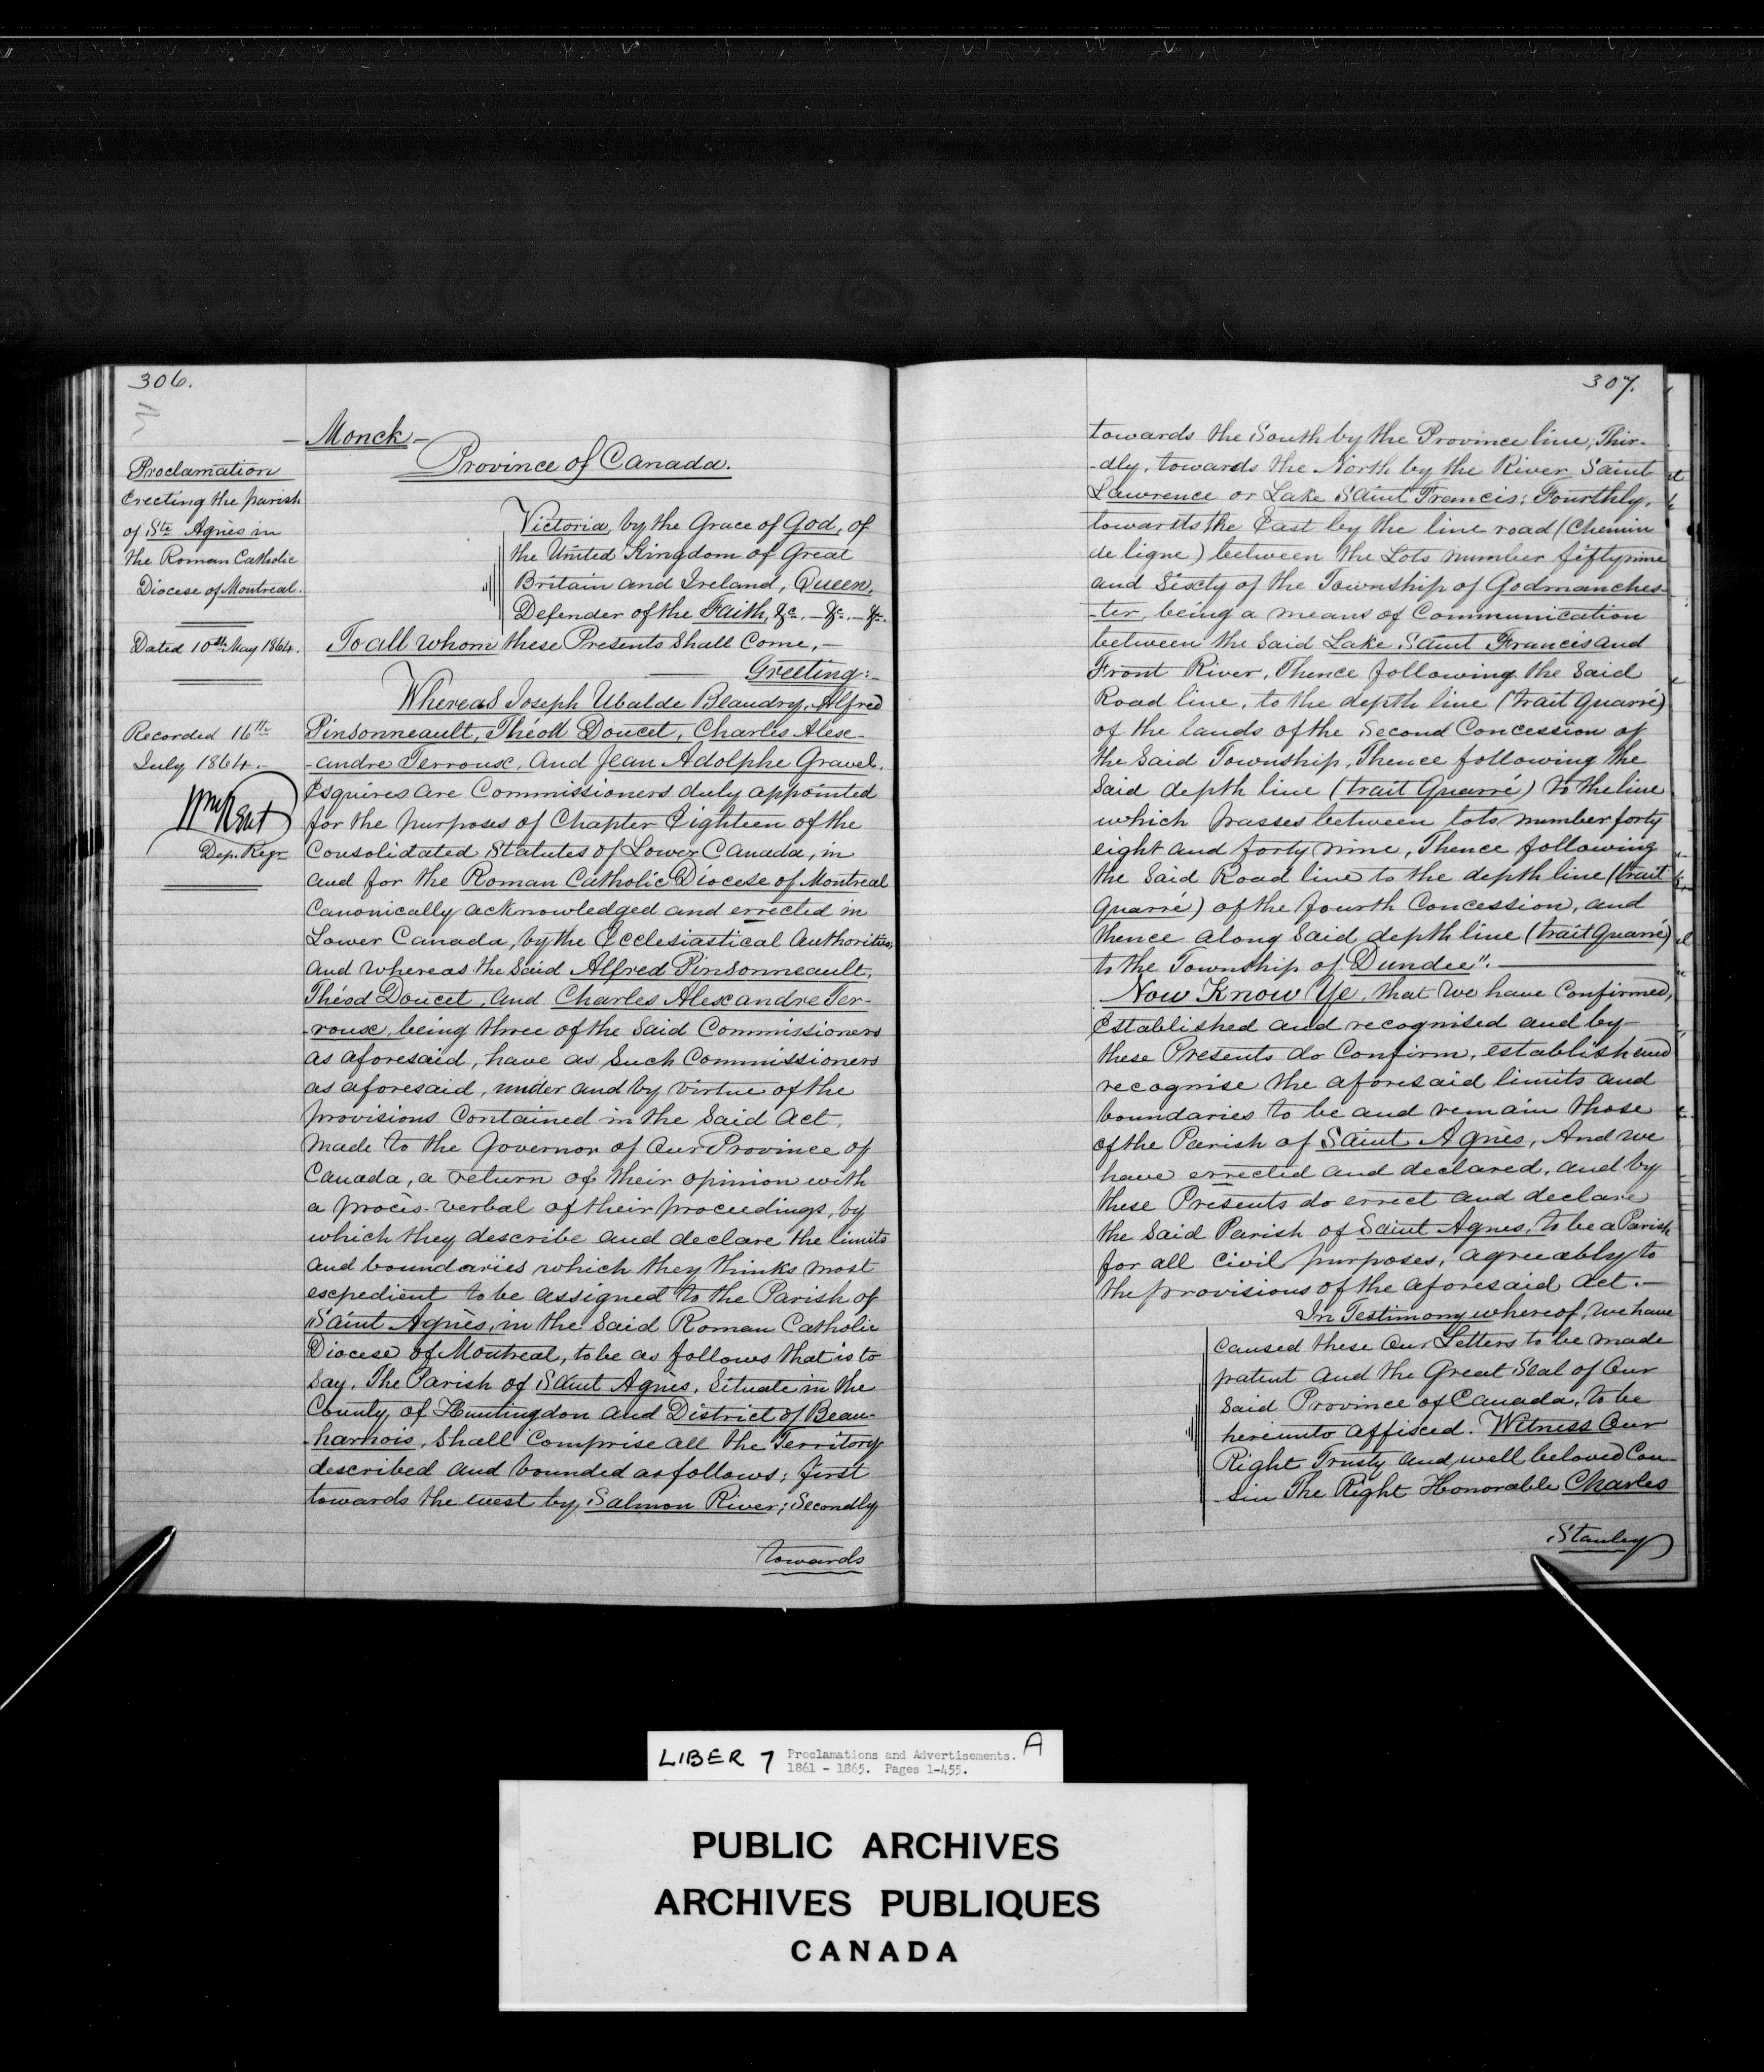 306.
Proclamation
Erecting the parish
of Ste Agnès in
the Roman Catholic
Diocese of Montreal.
Dated 10th May 1864.
Recorded 16th
July 1864.-
Dep. Regr
- Monck -
Province of Canada.
Victoria, by the Grace of God, of
the United Kingdom of Great
Britain and Ireland, Queen,
Defender of the Faith, &c. - &c. - &c.
To all whom these Presents Shall Come, -
Greeting:-
Whereas Joseph Ubalde Beaudry, Alfred
Pinsonneault, Théod Doucet, Charles Alex-
-andre Terroux, and Jean Adolphe Gravel,
Esquires are Commissioners duly appointed
for the purposes of Chapter Eighteen of the
Consolidated Statutes of Lower Canada, in
and for the Roman Catholic Diocese of Montreal
Canonically acknowledged and errected in
Lower Canada, by the Ecclesiastical Authorities,
and whereas the said Alfred Pinsonneault,
Théod Doucet, and Charles Alexandre Ter-
-roux, being three of the said Commissioners
as aforesaid, have as such Commissioners
as aforesaid, under and by virtue of the
provisions contained in the said Act,
made to the Governor of Our Province of
Canada, a return of their opinion with
a procès-verbal of their proceedings, by
which they describe and declare the limits
and boundaries which they thinks most
expedient to be assigned to the Parish of
Saint Agnès, in the said Roman Catholic
Diocese of Montreal, to be as follows that is to
say, The Parish of Saint Agnès, Situate in the
County of Huntingdon and District of Beau-
-harnois, Shall Comprise all the Territory
described and bounded as follows; first
towards the west by Salmon River; Secondly
towards
307.
towards the South by the Province line; Thir-
-dly, towards the North by the River Saint
Lawrence or Lake Saint Francis; Fourthly,
towards the East by the line road (Chemin
de ligne) between the Lots number fiftynine
and Sixty of the Township of Godmanches-
-ter, being a means of Communication
between the said Lake Saint Francis and
Front River, Thence following the said
Road line, to the depth line (trait quarré)
of the lands of the Second Concession of
the said Township, Thence following the
said depth line (trait quarré) to the line
which passes between lots number forty
eight and forty nine, Thence following
the said Road line to the depth line (trait
quarré) of the fourth Concession, and
thence along said depth line (trait quarré)
to the Township of Dundee".
Now Know Ye, that We have Confirmed,
Established and recognised and by
these Presents do Confirm, establish and
recognise the aforesaid limits and
boundaries to be and remain those
of the Parish of Saint Agnès, And we
have errected and declared, and by
these Presents do errect and declare
the said Parish of Saint Agnes, to be a Parish
for all civil purposes, agreeably to
the provisions of the aforesaid Act.-
In Testimony whereof, We have
caused these Our Letters to be made
patent and the Great Seal of Our
said Province of Canada, to be
hereunto affixed. Witness Our
Right Trusty and well beloved Cou-
-sin The Right Honorable Charles
Stanley
LIBER 7 Proclamations and Advertisements. A
1861 - 1865. Pages 1-455.
PUBLIC ARCHIVES
ARCHIVES PUBLIQUES
CANADA